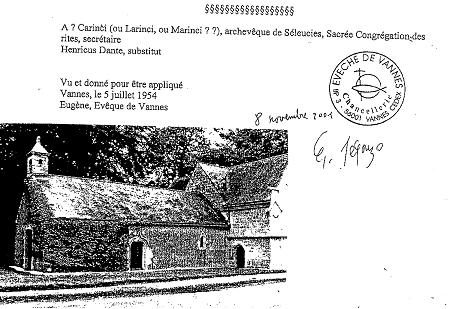 §§§§§§§§§§§§§§§§§§
A ? Carinci (ou Larinci, ou Marinci ? ?), archevêque de Séleucies, Sacrée Congrégation des
rites, secrétaire
Henricus Dante, substitut
Vu et donné pour être appliqué
Vannes, le 5 juillet 1954
Eugène, Evêque de Vannes
8 novembre 2001
EVECHE DE VANNES
Chancellerie
BP 3 - 56001 VANNES CEDEX